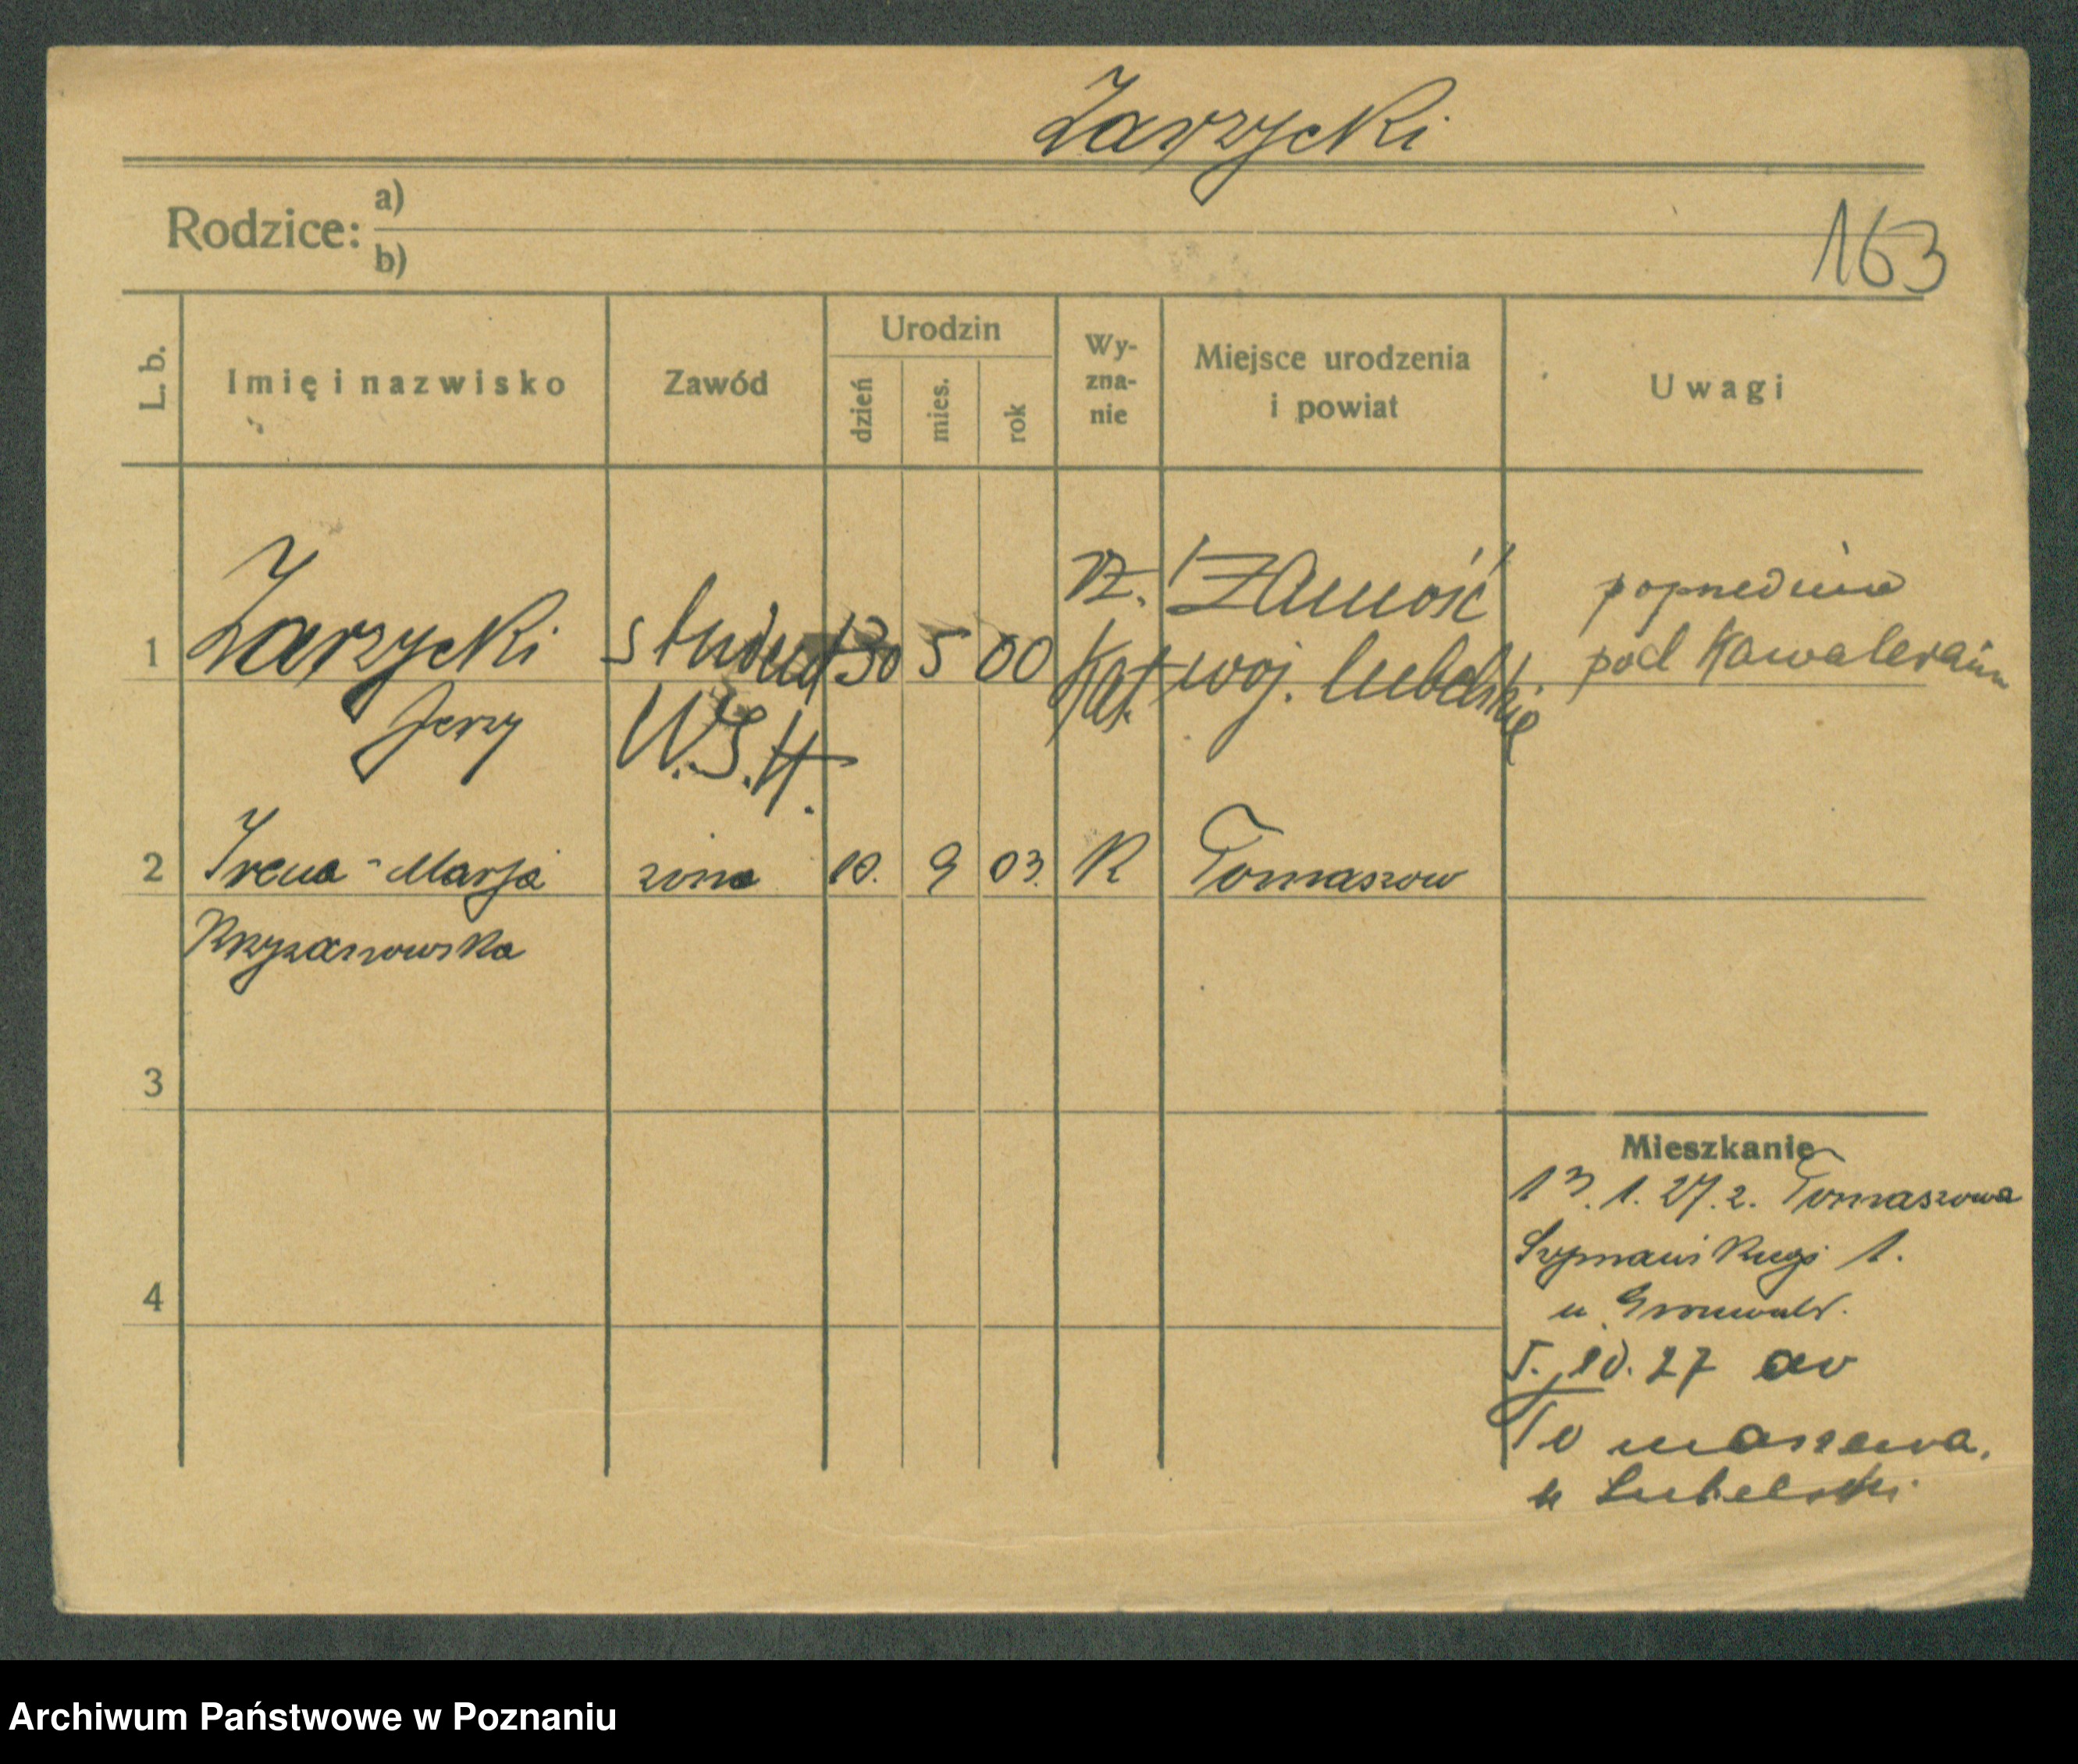 Zarzycki
Rodzice: a)
b)
163
L. b.
Imię i nazwisko
Zawód
Urodzin
dzień
mies.
rok
Wy-
zna-
nie
Miejsce urodzenia
i powiat
Uwagi
1 Zarzycki student 30 5 00 rz. Zamość poprzednio
Jerzy W.S.H. Kat woj. lubelskie pod Kawalerami
2 Irena-Marja żona 10. 9 03. R Tomaszow
Krzyzanowska
3
4
Mieszkanie
13.1.27. z. Tomaszowa
1.
u Grunwald.
5. 10. 27 do
Tomaszowa.
Lubelski
Archiwum Państwowe w Poznaniu